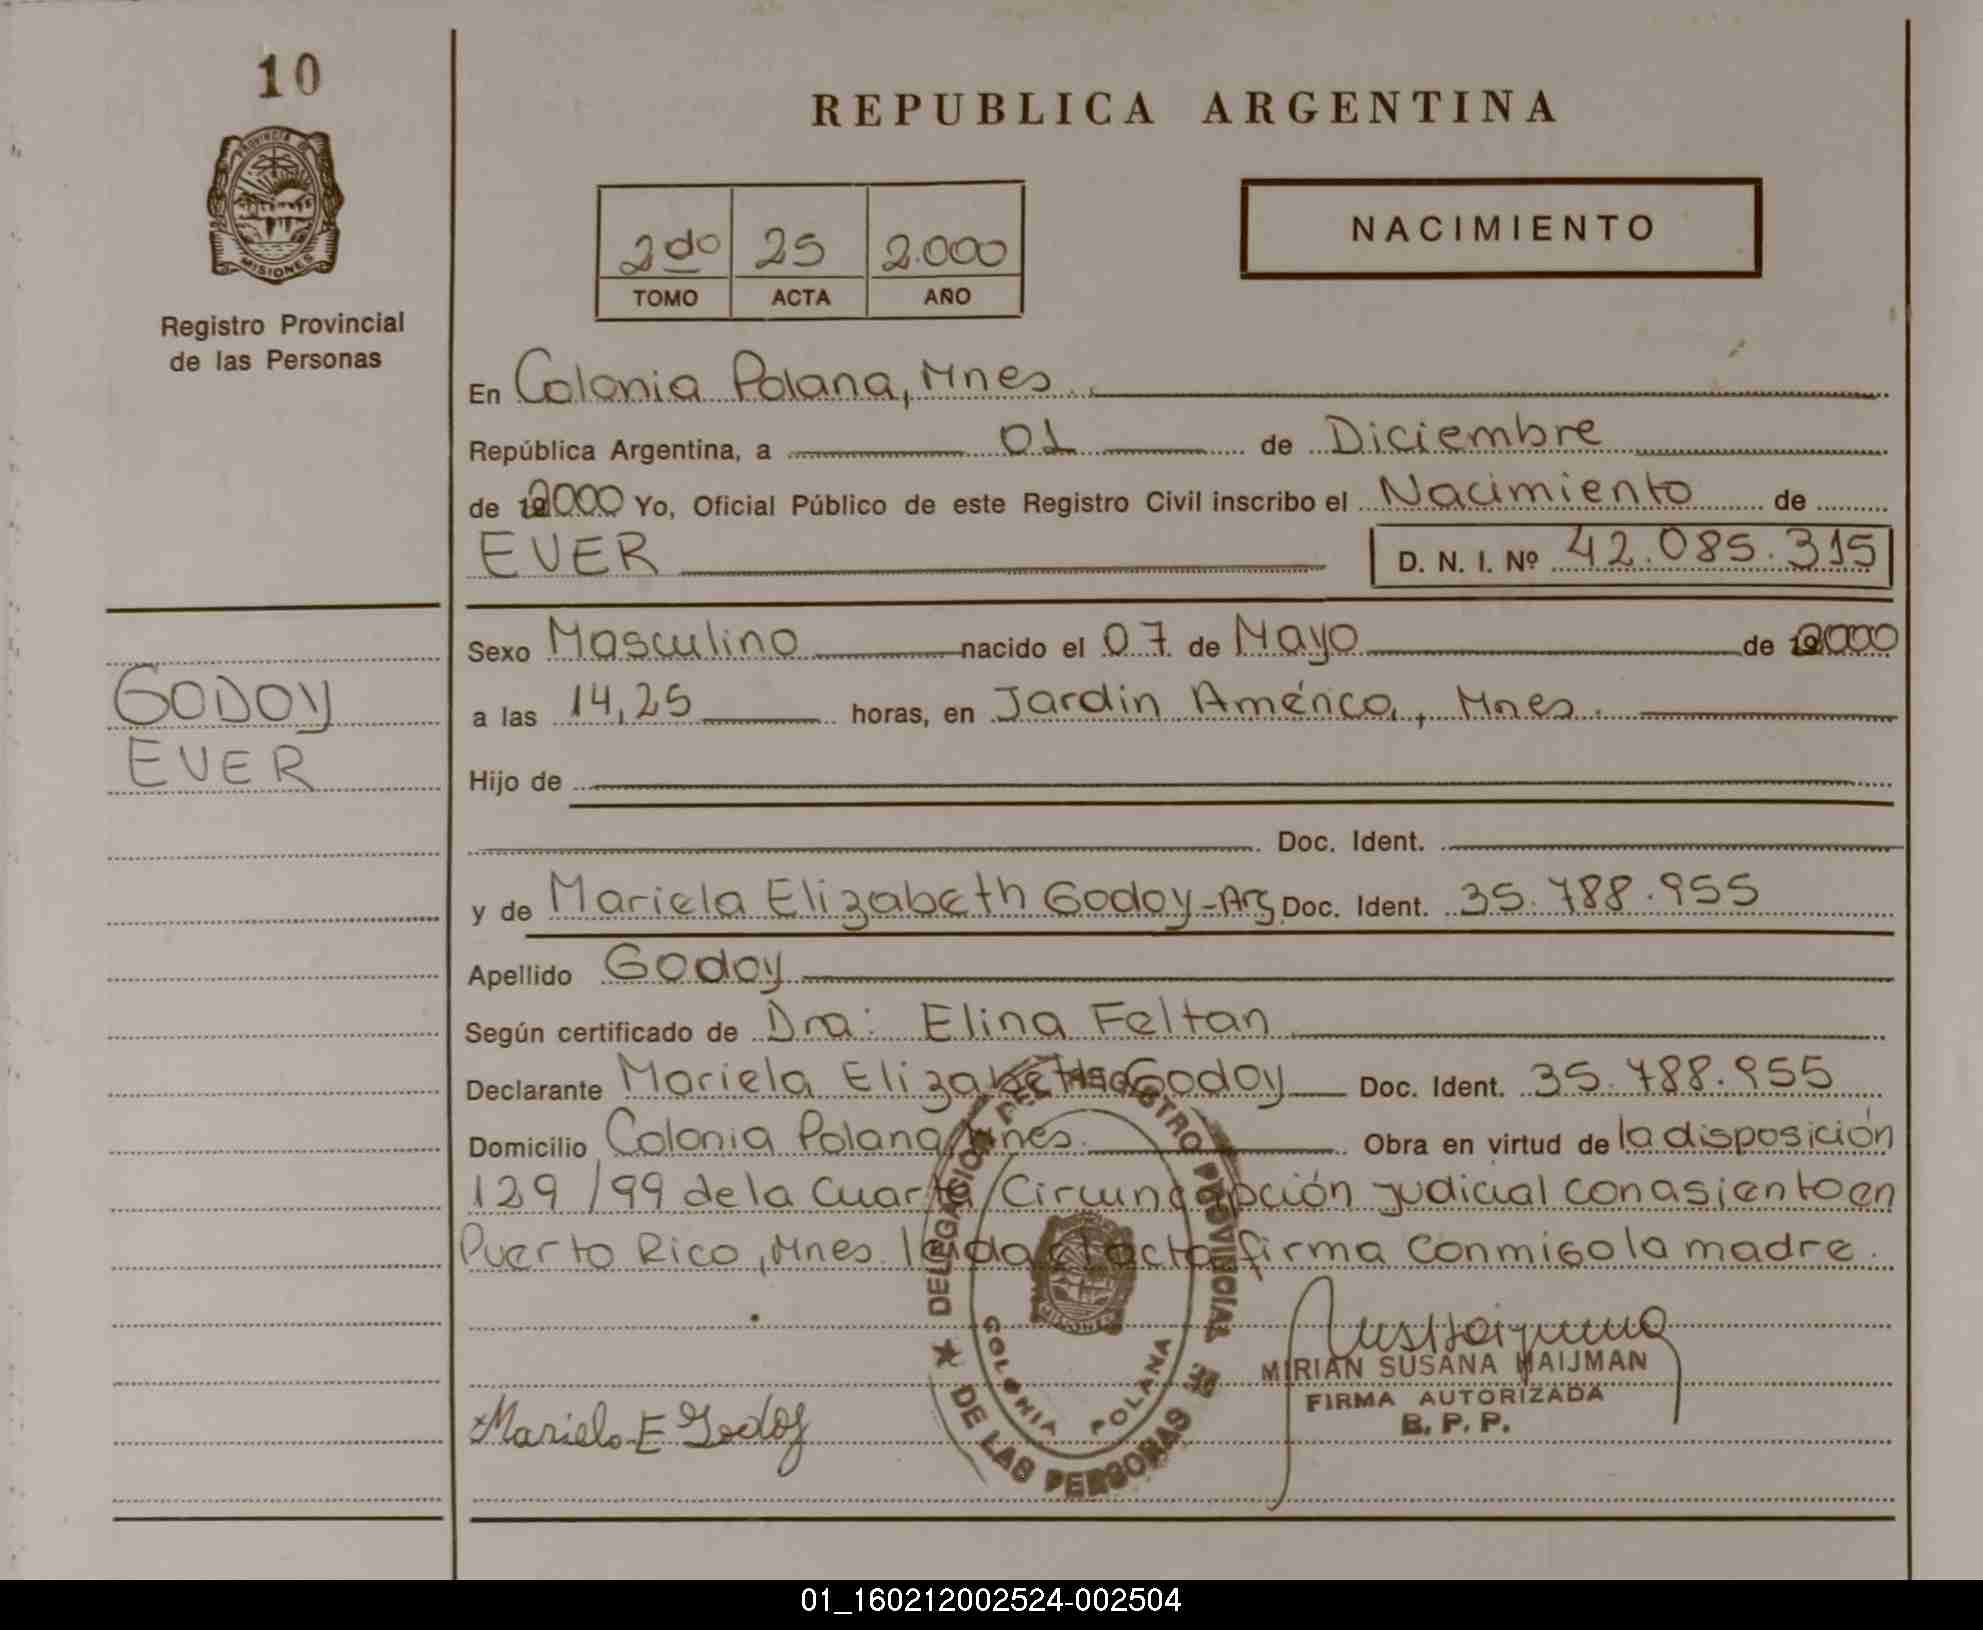 10
PROVINCIA DE
MISIONES
Registro Provincial
de las Personas
GODOY
EVER
REPUBLICA ARGENTINA
2do 25 2.000
TOMO ACTA AÑO
NACIMIENTO
En Colonia Polana, Mnes
República Argentina, a 01 de Diciembre
de 2000 Yo, Oficial Público de este Registro Civil inscribo el Nacimiento de
EVER D. N. I. Nº 42.085.315
Sexo Masculino nacido el 07 de Mayo de 2000
a las 14,25 horas, en Jardin América, Mnes.
Hijo de
Doc. Ident.
y de Mariela Elizabeth Godoy-Arg Doc. Ident. 35.788.955
Apellido Godoy
Según certificado de Dra: Elina Feltan
Declarante Mariela Elizabeth Godoy Doc. Ident. 35.788.955
Domicilio Colonia Polana, Mnes. Obra en virtud de la disposición
129/99 de la Cuarta Circunscripción judicial con asiento en
Puerto Rico, Mnes. leida el acta firma conmigo la madre.
DELEGACION DEL REGISTRO PROVINCIAL
DE LAS PERSONAS
COLONIA POLANA
MISIONES
MIRIAN SUSANA HAIJMAN
FIRMA AUTORIZADA
B. P. P.
Mariela E Godoy
01_160212002524-002504